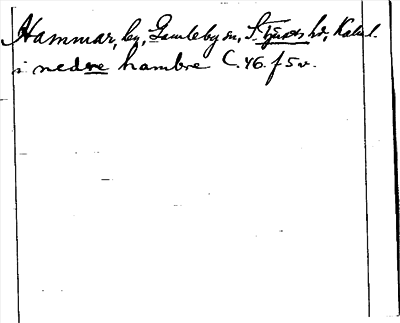 Hammar, by, Gamleby sn, S. Tjusts hd, Kalm. l.
i nedre hambre C. 46. f 5 v.